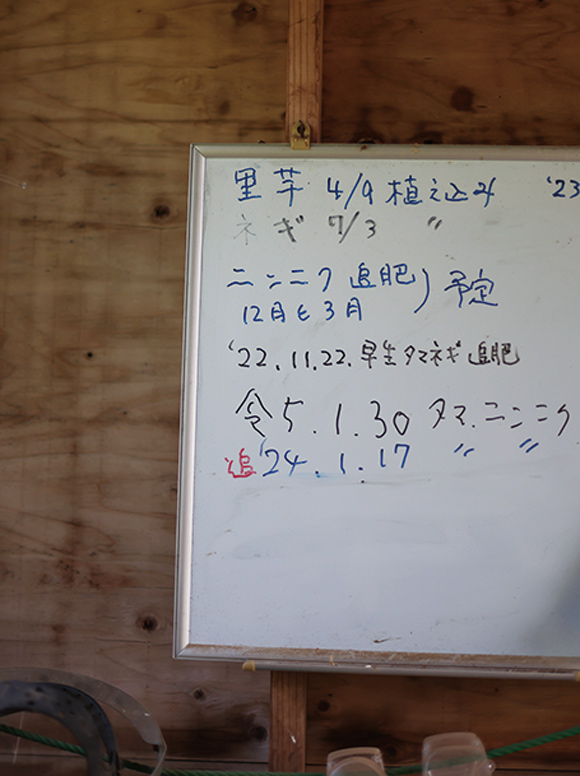 里芋 4/9 植え込み '23
ネギ 7/3 〃
ニンニク 追肥 ) 予定
12月と3月
'22.11.22.早生タマネギ 追肥
令5.1.30 タマ.ニンニク
追 '24.1.17 〃 〃